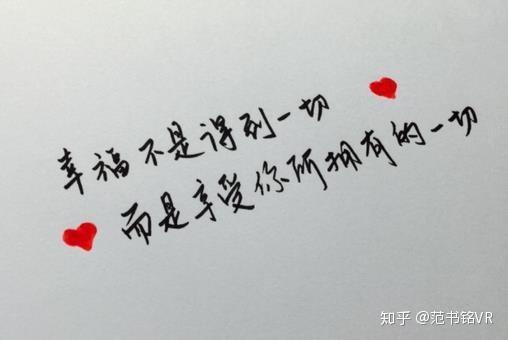 幸福不是得到一切
而是享受你所拥有的一切
知乎 @范书铭VR